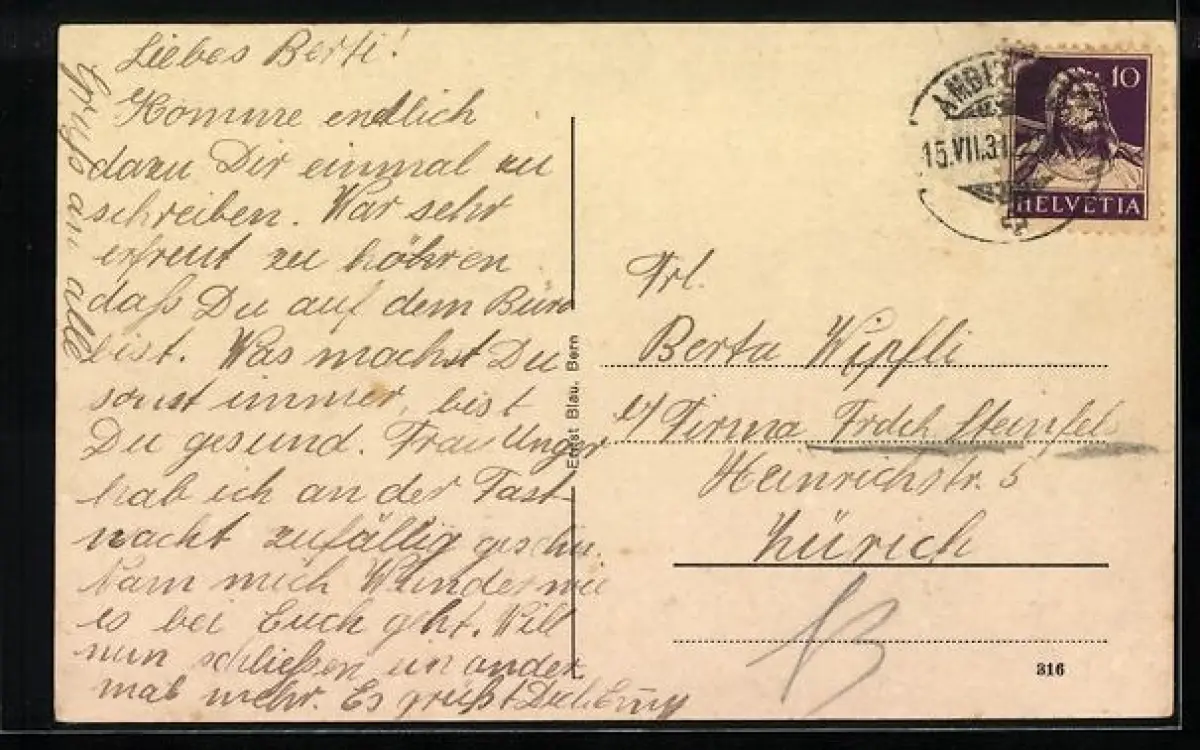 Liebes Berti!
Komme endlich
dazu Dir einmal zu
schreiben. War sehr
erfreut zu höhren
daß Du auf dem Büro
bist. Was machst Du
sonst immer, bist
Du gesund. Frau Unger
hab ich an der Fast-
nacht zufällig gesehn.
Nam mich Wunder wie
es bei Euch geht. Will
nun schließen ein ander
mal mehr. Es grüßt Dich
Gruß an alle
Ernst Blau, Bern
10
HELVETIA
15.VII.31
Frl.
Berta Wipfli
Firma Frdch Steinfels
Heinrichstr. 5
Zürich
316